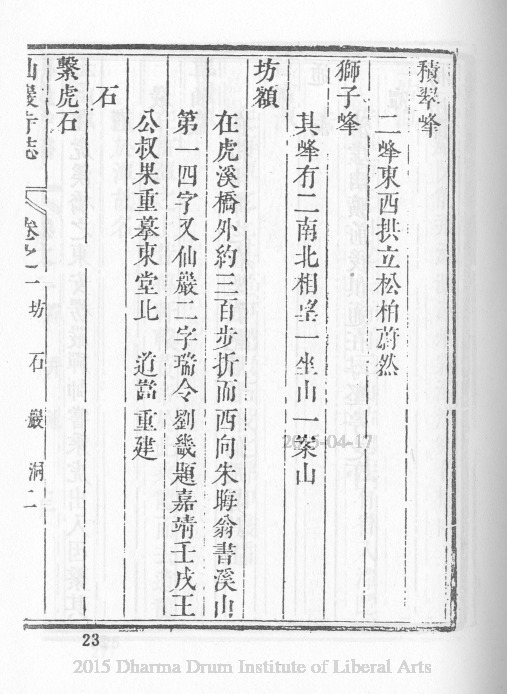 積翠峰
二峰東西拱立松柏蔚然
獅子峰
其峰有二南北相望一坐山一案山
坊額
在虎溪橋外約三百步折而西向朱晦翁書溪山
第一四字又仙巖二字瑞令劉畿題嘉靖壬戌王
公叔果重摹東堂比 道嵩重建
石
繫虎石
仙巖寺志 卷之二 坊 石 巖 洞 二
2015-04-17
23
2015 Dharma Drum Institute of Liberal Arts